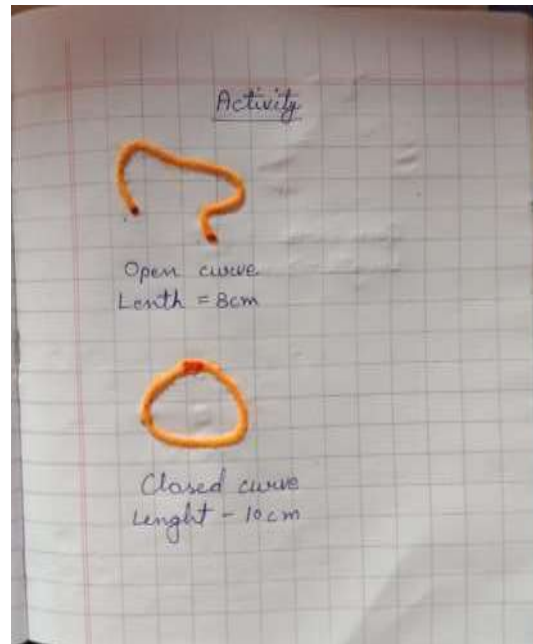 Activity
Open curve
Lenth = 8cm
Closed curve
Lenght - 10cm